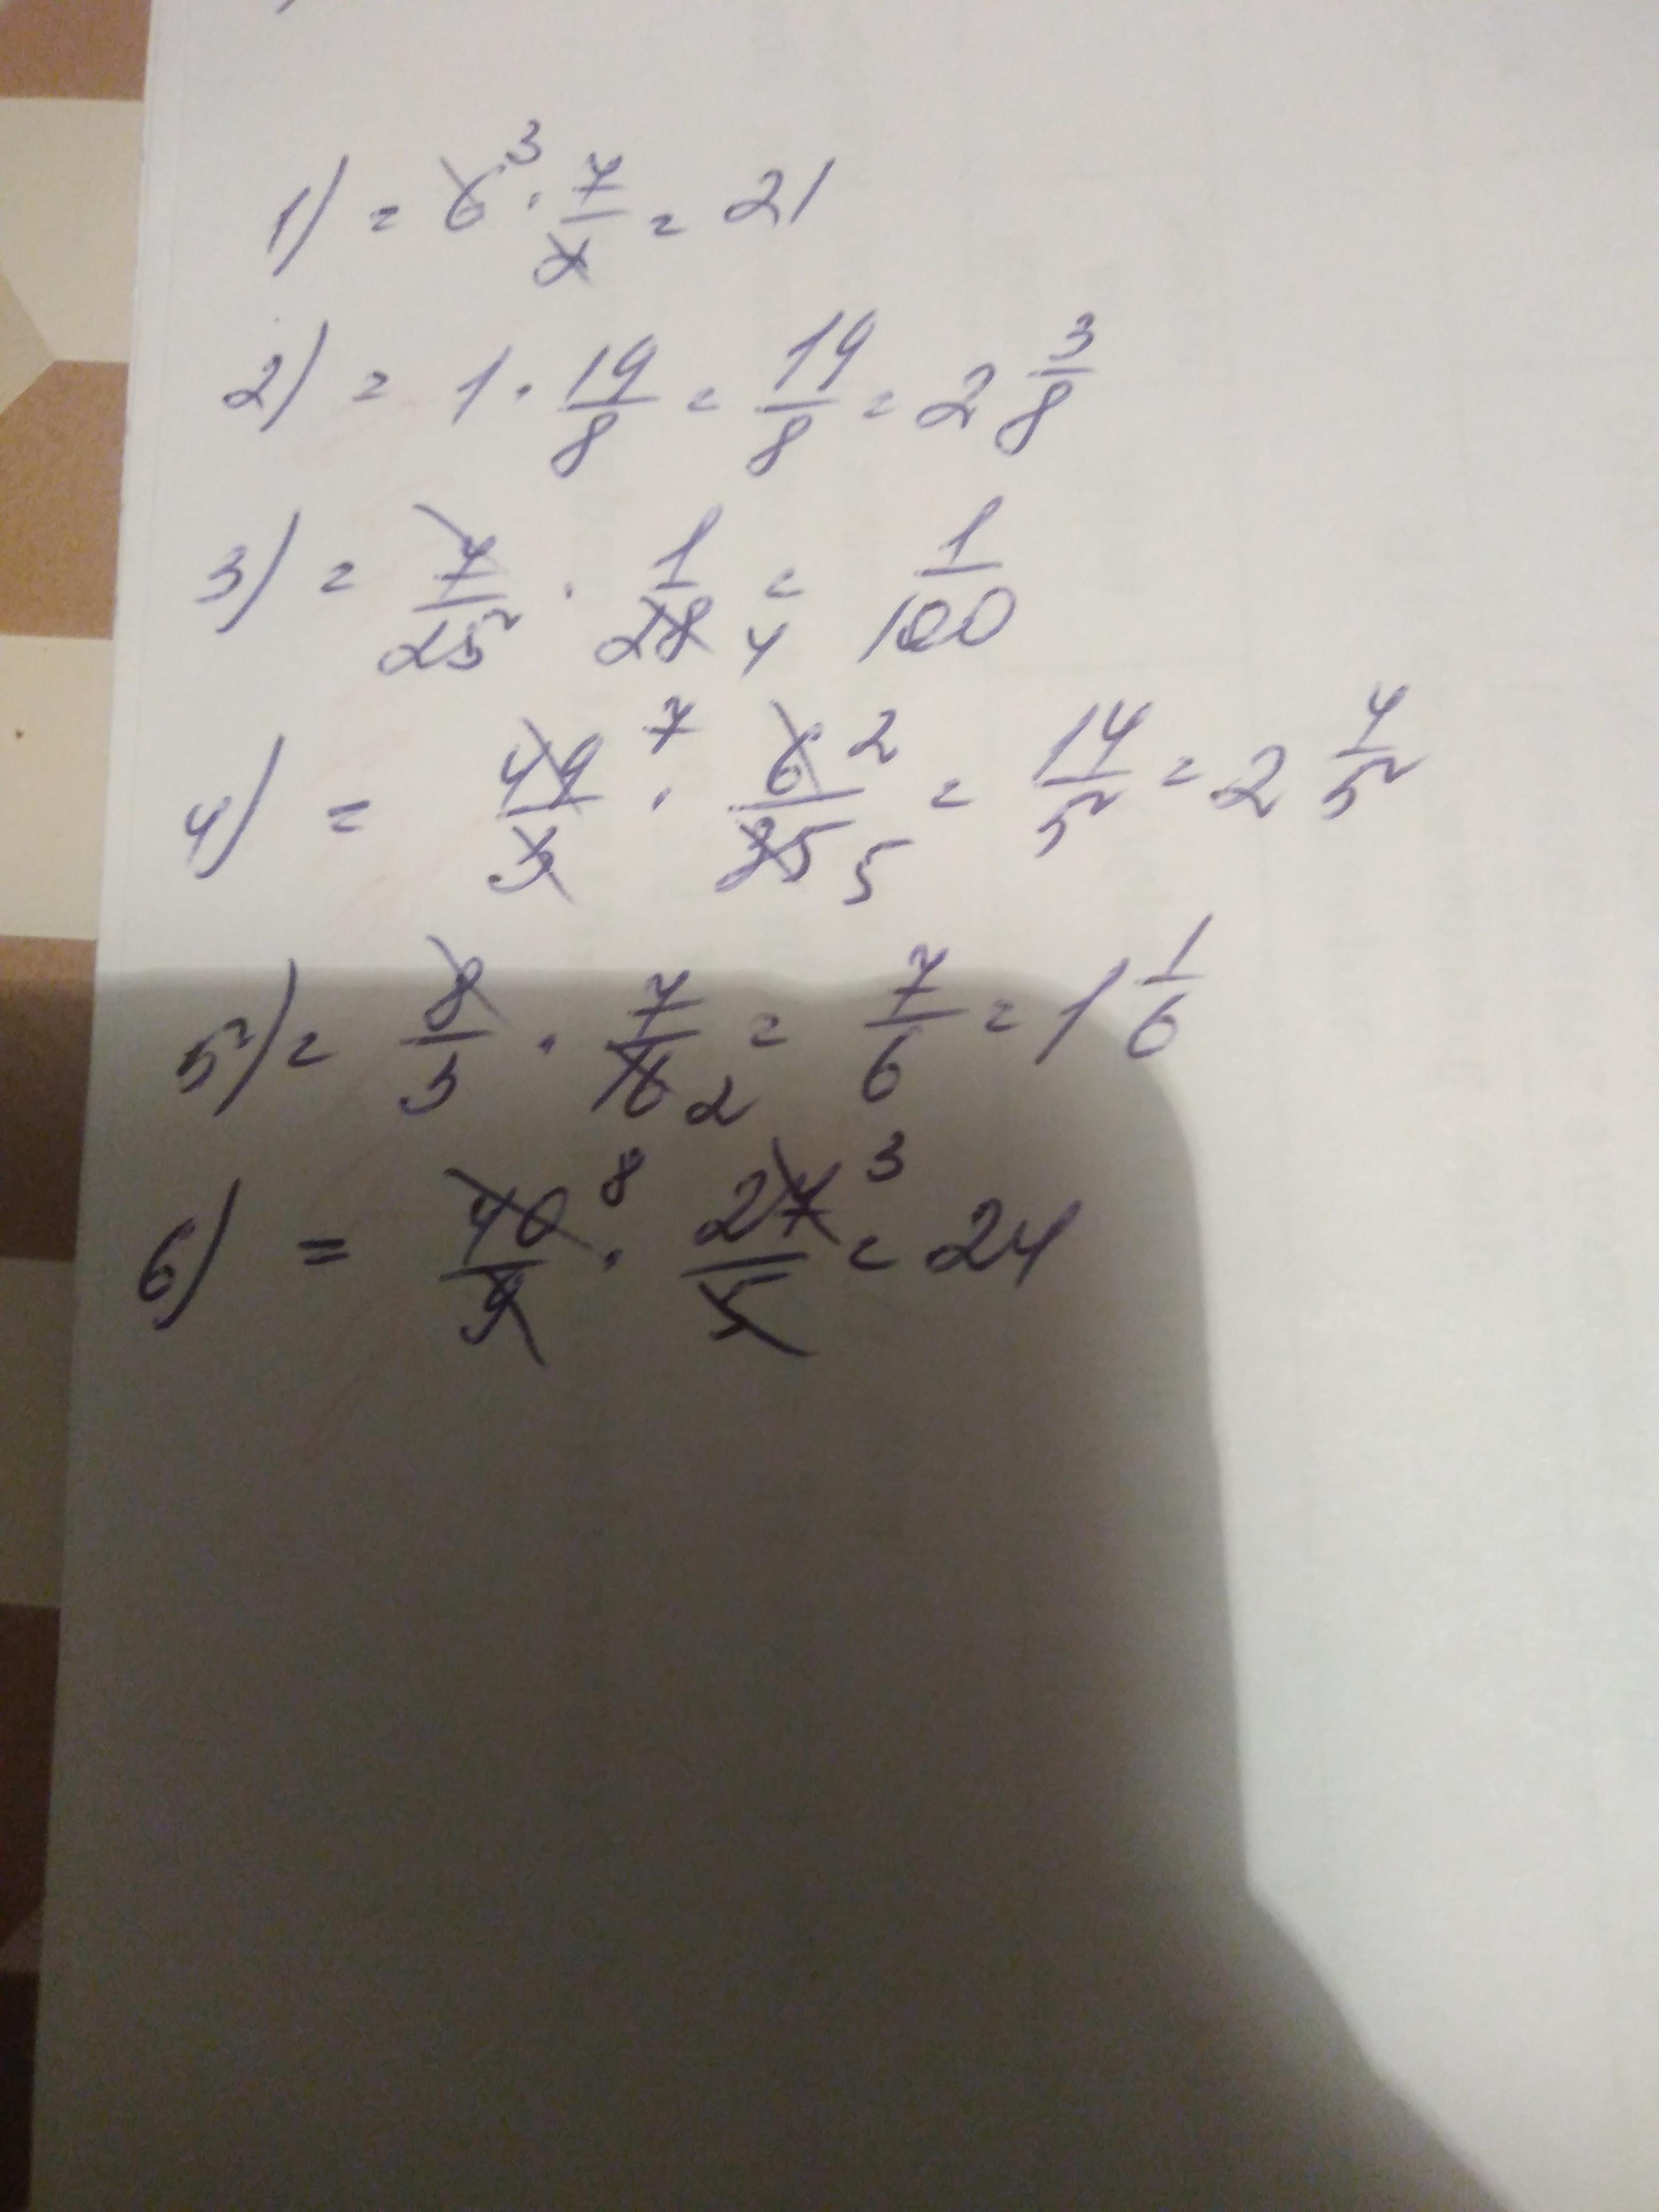 1) = 6 3 · 7/2 = 21
2) = 1 · 19/8 = 19/8 = 2 3/8
3) = 7/25 · 1/28 4 = 1/100
4) = 49/3 7 · 6/35 2 5 = 14/5 = 2 4/5
5) = 8/3 · 7/16 2 = 7/6 = 1 1/6
6) = 40/9 8 · 27/5 3 = 24